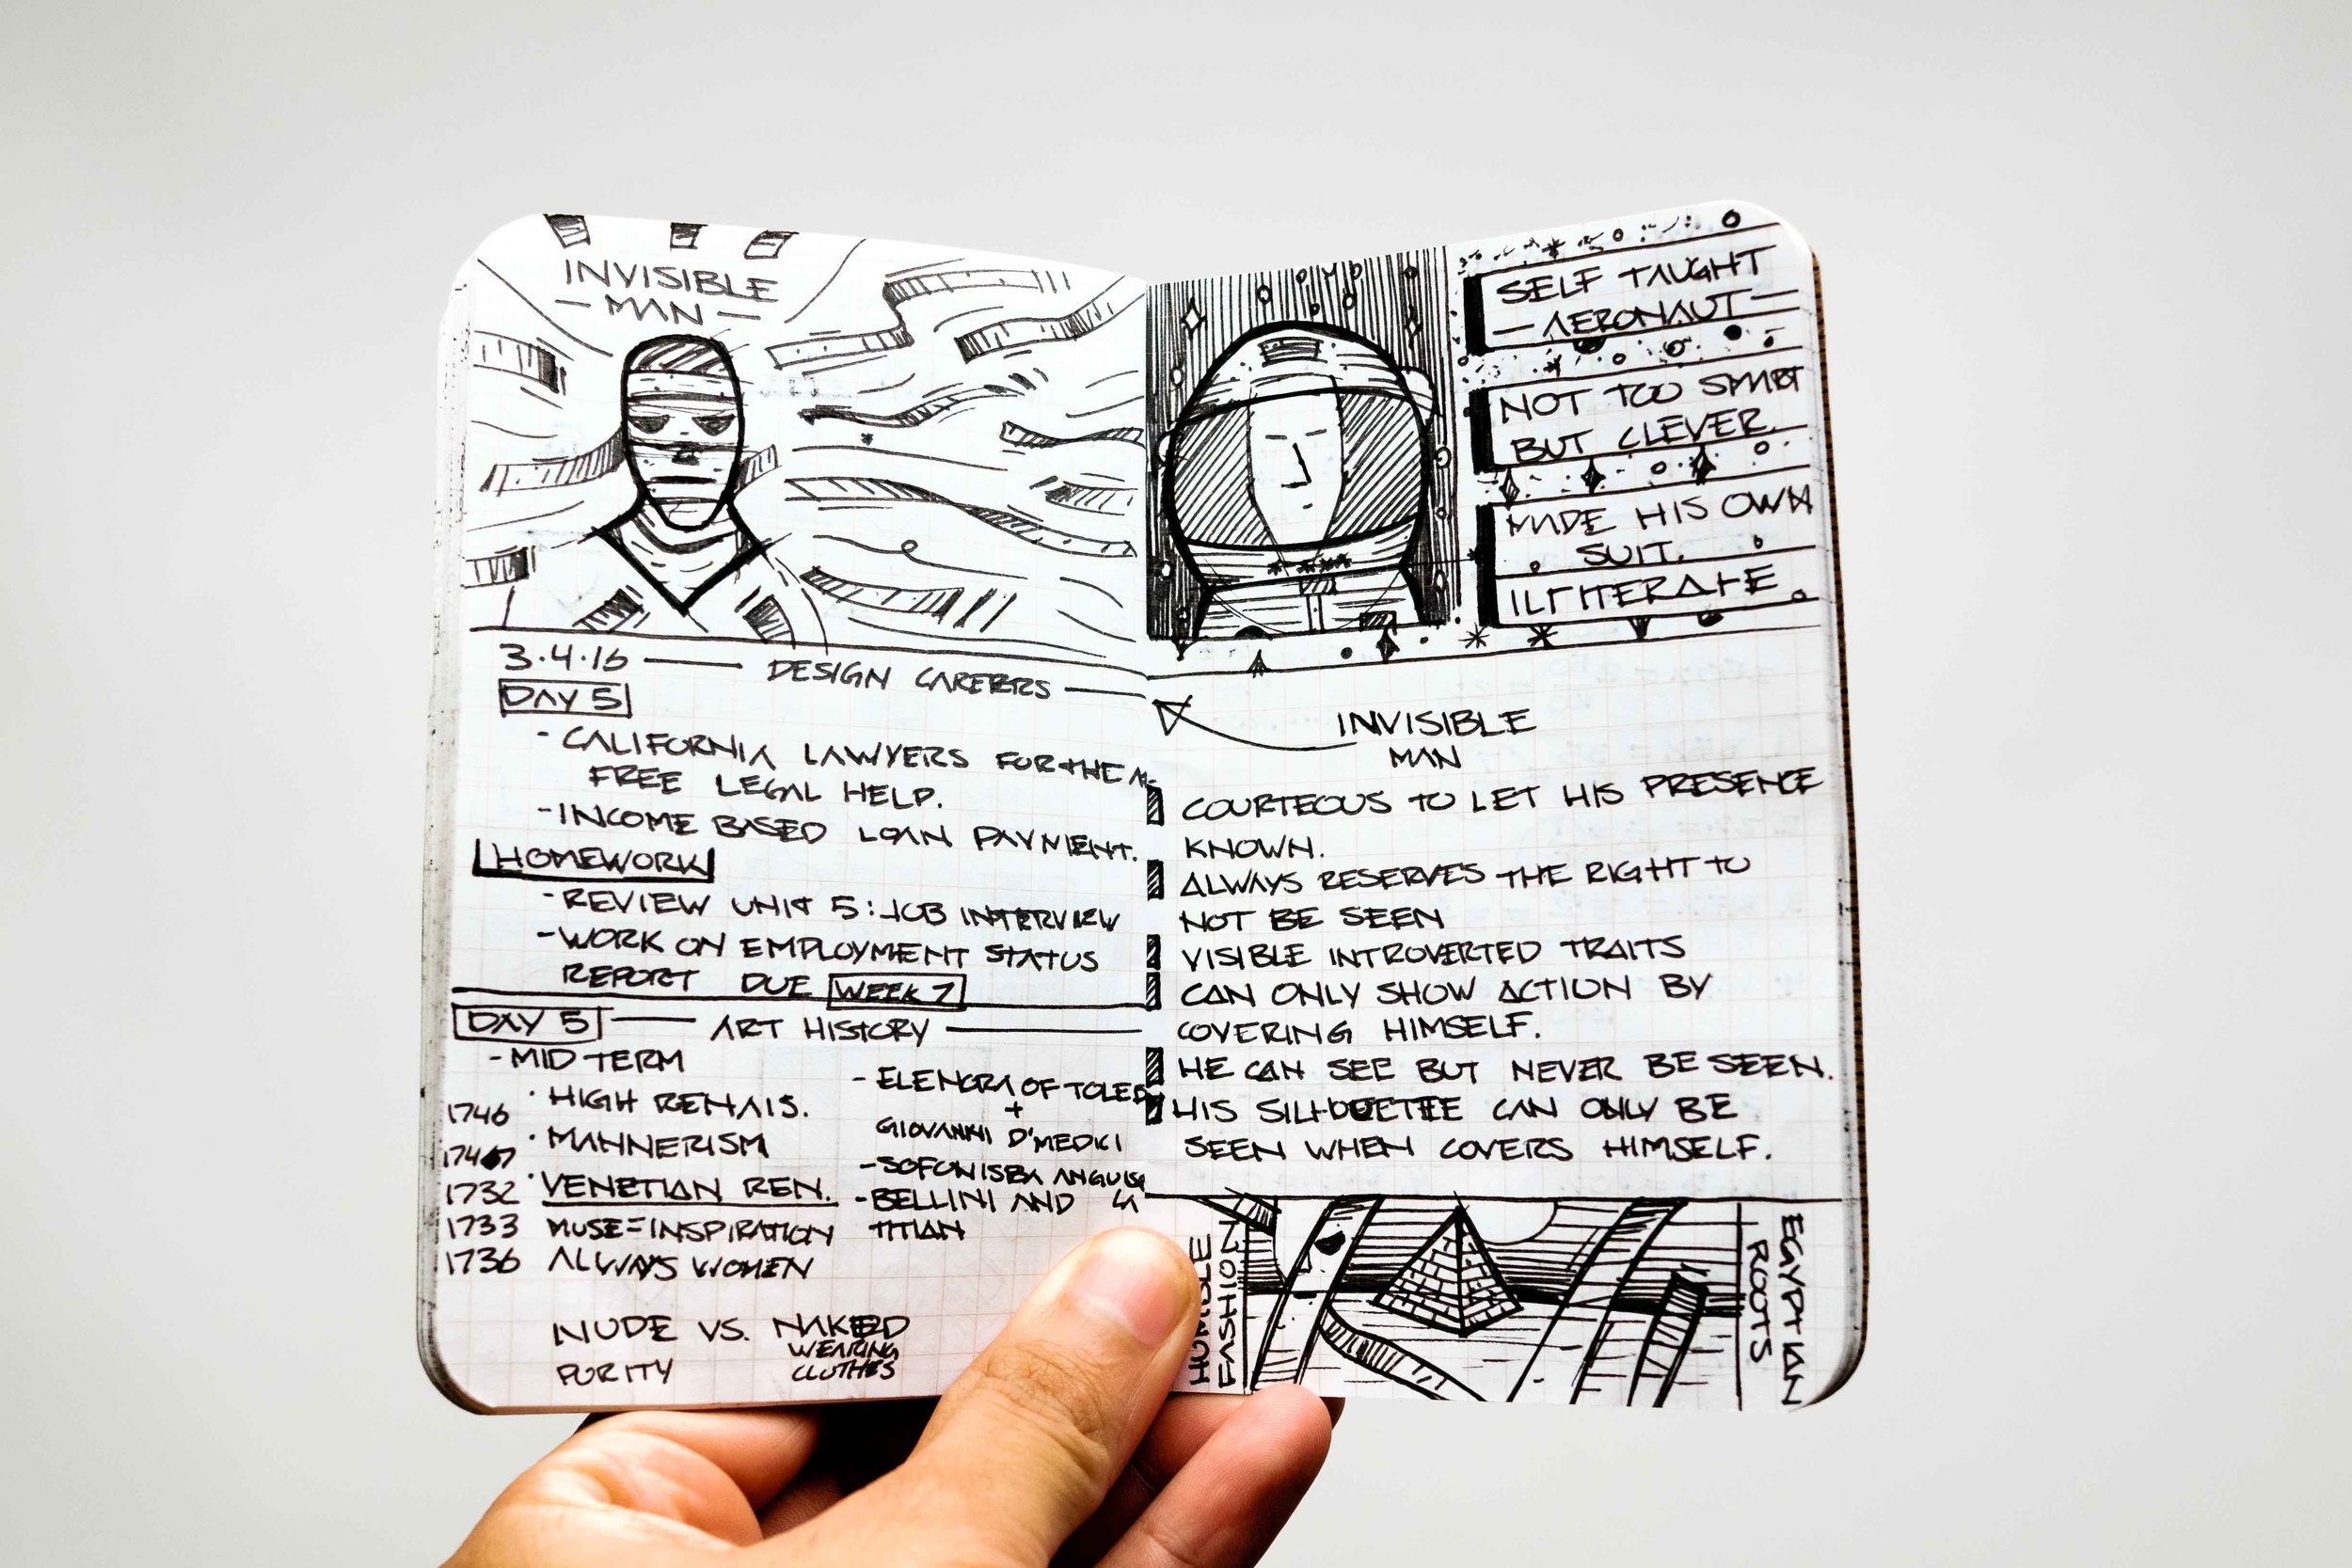 INVISIBLE
— MAN —
3.4.16 — DESIGN CAREERS —
DAY 5
- CALIFORNIA LAWYERS FOR THE
FREE LEGAL HELP.
- INCOME BASED LOAN PAYMENT.
HOMEWORK
- REVIEW UNIT 5: JOB INTERVIEW
- WORK ON EMPLOYMENT STATUS
REPORT DUE WEEK 7
DAY 5 — ART HISTORY —
- MID TERM
· HIGH RENAIS.
1746
· MANNERISM
1747
· VENETIAN REN.
1732
1733 MUSE = INSPIRATION
1736 ALWAYS WOMEN
- ELENORA OF TOLED
+
GIOVANNI D'MEDICI
- SOFONISBA ANGUIS
- BELLINI AND
TITIAN
NUDE VS. NAKED
PURITY
WEARING
CLOTHES
SELF TAUGHT
— AERONAUT —
NOT TOO SMART
BUT CLEVER.
MADE HIS OWN
SUIT.
ILITERATE
INVISIBLE
MAN
COURTEOUS TO LET HIS PRESENCE
KNOWN.
ALWAYS RESERVES THE RIGHT TO
NOT BE SEEN
VISIBLE INTROVERTED TRAITS
CAN ONLY SHOW ACTION BY
COVERING HIMSELF.
HE CAN SEE BUT NEVER BE SEEN.
HIS SILHOUETTE CAN ONLY BE
SEEN WHEN COVERS HIMSELF.
HUMBLE
FASHION
EGYPTIAN
ROOTS